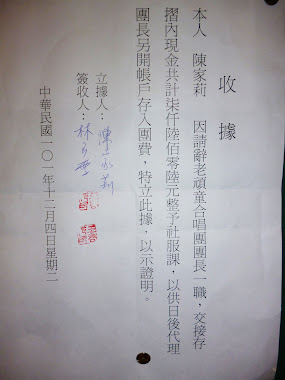 收據
本人 陳家莉 因請辭老頑童合唱團團長一職，交接存
摺內現金共計柒仟陸佰零陸元整予社服課，以供日後代理
團長另開帳戶存入團費，特立此據，以示證明。
立據人：陳家莉
簽收人：林
中華民國一○一年十二月四日星期二